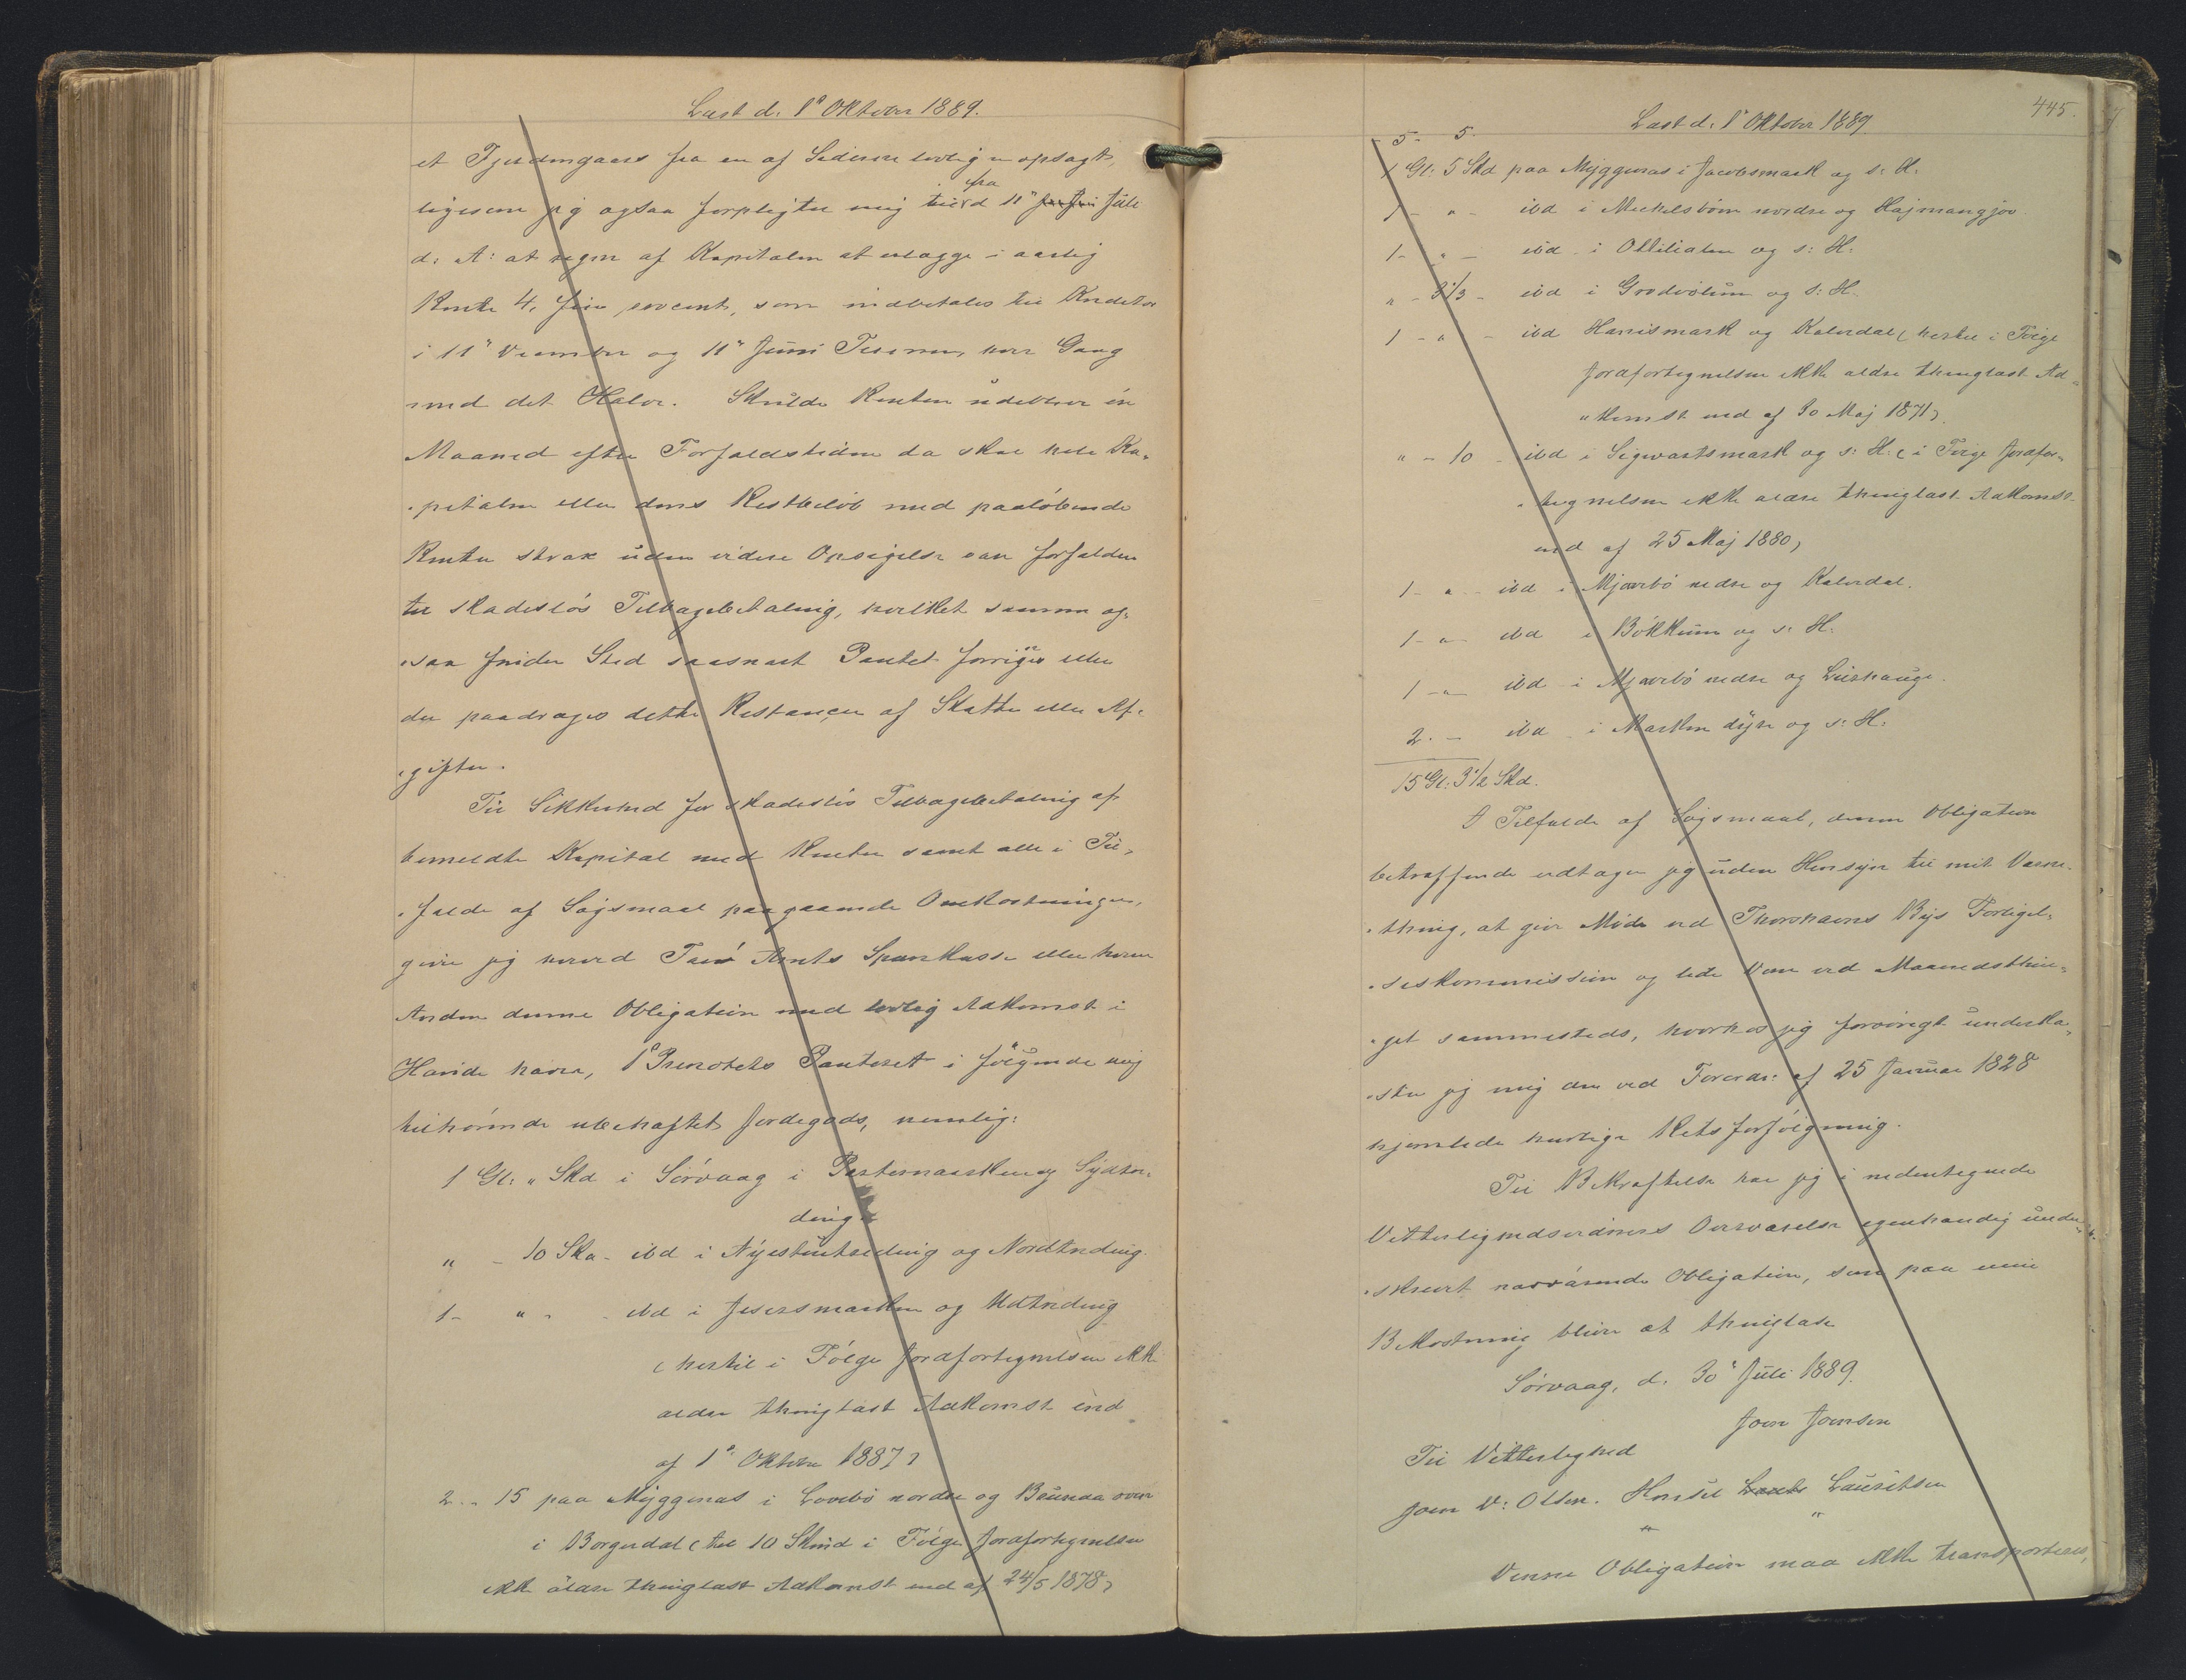 Læst d. 1ste Oktober 1889.
et Fjerdingaars fra en af Siderne lovlig opsagt,
ligesom jeg ogsaa forpligter mig til fra d 11te Juli
d: A: at regne af Kapitalen at erlægge i aarlig
Rente 4, fire procent, som indbetales til Kreditor
i 11te December og 11te Juni Termin, hver Gang
med det Halve. Skulde Renten udeblive én
Maaned efter Forfaldstiden da skal hele Ka-
pitalen eller dens Restbeløb med paaløbende
Renter strax uden videre Opsigelse være forfalden
til skadesløs Tilbagebetaling, hvilket samme og-
saa finder Sted saasnart Pantet forringes eller
der paadrages dette Restancer af Skatter eller Af-
gifter.
Til Sikkerhed for skadesløs Tilbagebetaling af
bemeldte Kapital med Renter samt alle i Til-
fælde af Søgsmaal paagaaende Omkostninger,
giver jeg herved Færø Amts Sparekasse eller hvem
Anden denne Obligation med lovlig Adkomst i
Hænde haver, 1ste Prioritets Panteret i følgende mig
tilhørende ubehæftet Jordegods, nemlig:
1 Gl: " Skd i Sørvaag i Pætursmarken og Sydtræ-
ding
" - 10 Skd - ibd i Nýestuetræding og Nordtræding.
1 - " - ibd i Jesersmarken og Udtræding
(hertil i Følge Jordfortegnelsen ikke
ældre thinglæst Adkomst end
af 1ste Oktober 1887)
2 - 15 paa Myggenæs i Lambø nordre og Beunda over
i Borgardal (til 10 Skind i Følge Jordfortegnelsen
ikke ældre thinglæst Adkomst end af 24/5 1878)
445.
Læst d. 1ste Oktober 1889
5 - 5
1 Gl: 5 Skd paa Myggenæs i Jacobsmark og s: H:
1 - " - ibd i Mickelsbøen nordre og Hajmangjov
1 - " - ibd i Ollilialen og s: H:
" - 3 1/3 - ibd i Grødvølum og s: H.
1 - " - ibd Harrismark og Kalvdal (hertil i Følge
Jordfortegnelsen ikke ældre thinglæst Ad-
komst end af 30 Maj 1871)
" - 10 - ibd i Sigvartsmark og s: H: (i Følge Jordfor-
tegnelsen ikke ældre thinglæst Adkomst
end af 25 Maj 1880)
1 - " - ibd i Mjavebø nedre og Kalvdal.
1 - " - ibd i Bøkkum og s: H:
1 - " - ibd i Mjavebø nedre og Liúshauge.
2. - ibd i Marken dýre og s: H:
15 Gl: 3 1/2 Skd.
I Tilfælde af Søgsmaal, denne Obligation
betræffende vedtager jeg uden Hensyn til mit Værne-
thing, at give Møde ved Thorshavns Byes Forligel-
seskommission og lide Dom ved Maanedsthin-
get sammesteds, hvorhos jeg forøvrigt underka-
ster jeg mig den ved Forordn: af 25 Januar 1828
hjemlede hurtige Retsforfølgning.
Til Bekræftelse har jeg i nedentegnede
Vitterlighedsvidners Overværelse egenhændig under-
skrevet nærværende Obligation, som paa min
Bekostning bliver at thinglæse
Sørvaag, d. 30te Juli 1889.
Joen Joensen
Til Vitterlighed
Joen D: Olsen. Lauritsen
Denne Obligation maa ikke transporteres,